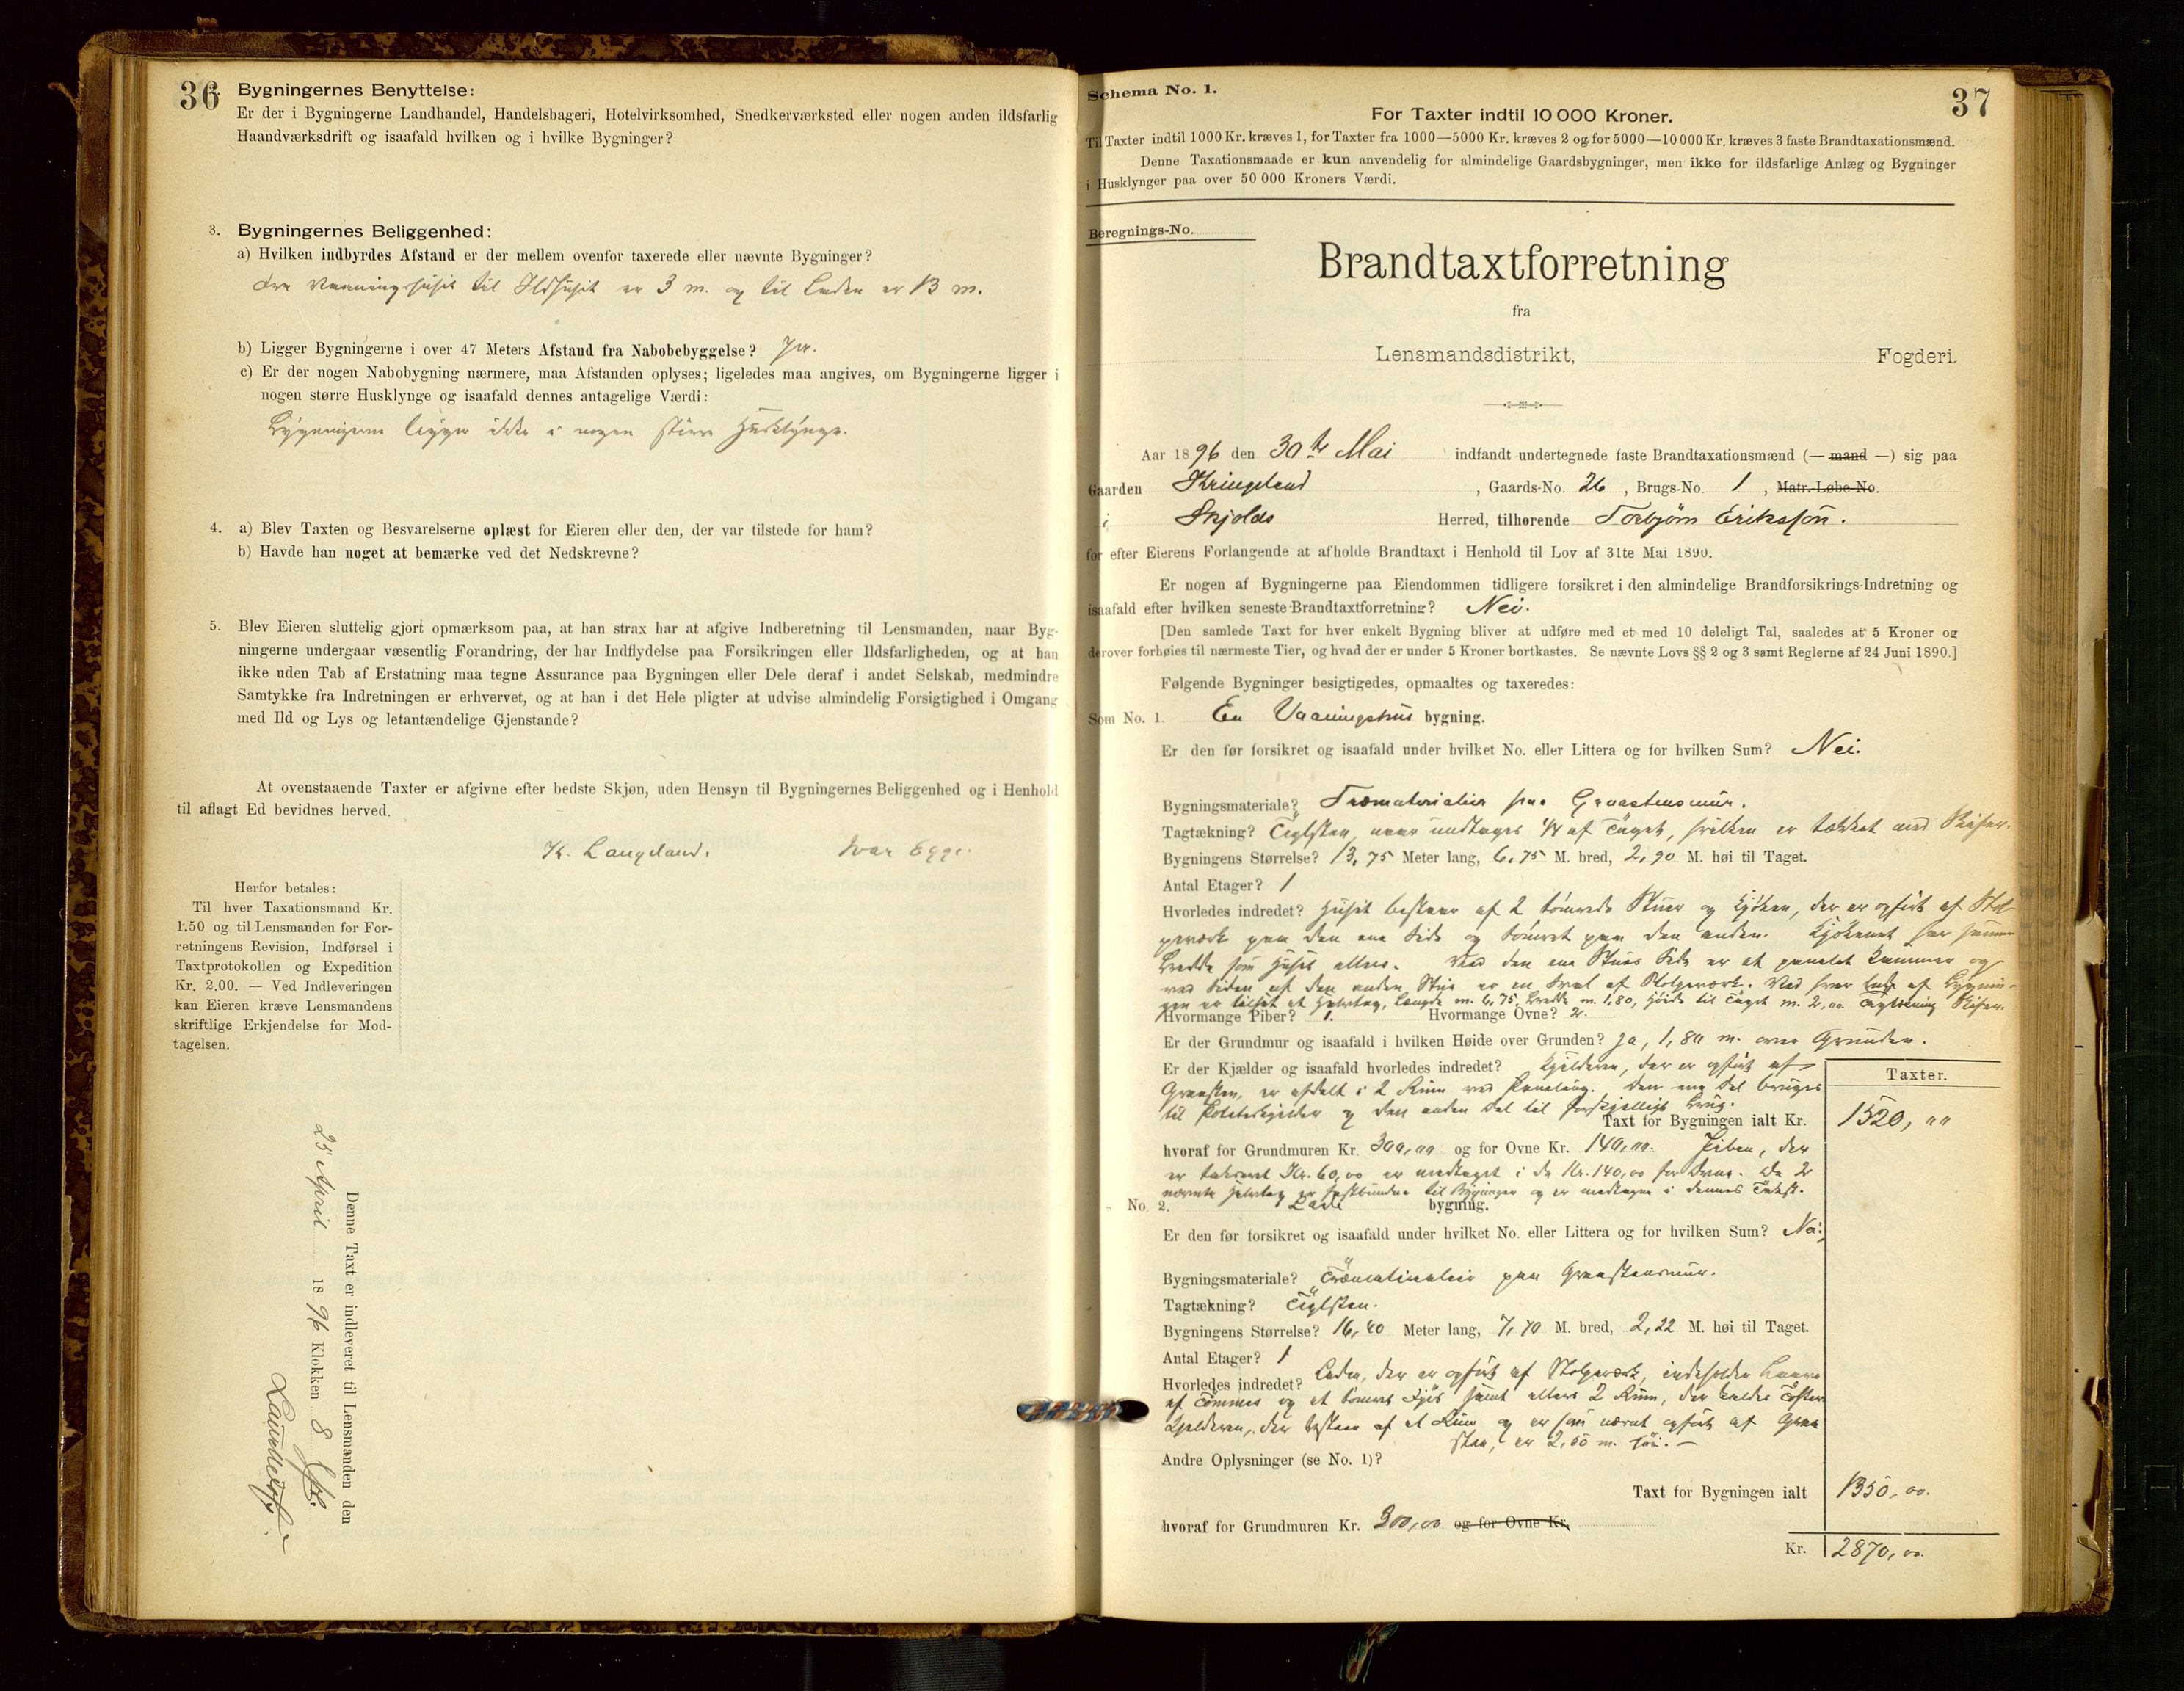 36
Bygningernes Benyttelse:
Er der i Bygningerne Landhandel, Handelsbageri, Hotelvirksomhed, Snedkerværksted eller nogen anden ildsfarlig
Haandværksdrift og isaafald hvilken og i hvilke Bygninger?
3. Bygningernes Beliggenhed:
a) Hvilken indbyrdes Afstand er der mellem ovenfor taxerede eller nævnte Bygninger?
Fra Vaaningshuset til Ildhuset er 3 m. og til Laden er 13 m.
b) Ligger Bygningerne i over 47 Meters Afstand fra Nabobebyggelse? Ja.
c) Er der nogen Nabobygning nærmere, maa Afstanden oplyses; ligeledes maa angives, om Bygningerne ligger i
nogen større Husklynge og isaafald dennes antagelige Værdi:
Bygningerne ligger ikke i nogen större Husklynge.
4. a) Blev Taxten og Besvarelserne oplæst for Eieren eller den, der var tilstede for ham?
b) Havde han noget at bemærke ved det Nedskrevne?
5. Blev Eieren sluttelig gjort opmærksom paa, at han strax har at afgive Indberetning til Lensmanden, naar Byg-
ningerne undergaar væsentlig Forandring, der har Indflydelse paa Forsikringen eller Ildsfarligheden, og at han
ikke uden Tab af Erstatning maa tegne Assurance paa Bygningen eller Dele deraf i andet Selskab, medmindre
Samtykke fra Indretningen er erhvervet, og at han i det Hele pligter at udvise almindelig Forsigtighed i Omgang
med Ild og Lys og letantændelige Gjenstande?
At ovenstaaende Taxter er afgivne efter bedste Skjøn, uden Hensyn til Bygningernes Beliggenhed og i Henhold
til aflagt Ed bevidnes herved.
K. Langeland. Ivar Egge.
Herfor betales:
Til hver Taxationsmand Kr.
1.50 og til Lensmanden for For-
retningens Revision, Indførsel i
Taxtprotokollen og Expedition
Kr. 2.00. — Ved Indleveringen
kan Eieren kræve Lensmandens
skriftlige Erkjendelse for Mod-
tagelsen.
Denne Taxt er indleveret til Lensmanden den
25 April 1896 Klokken 8
37
Schema No. 1.
For Taxter indtil 10 000 Kroner.
Til Taxter indtil 1000 Kr. kræves 1, for Taxter fra 1000—5000 Kr. kræves 2 og for 5000—10 000 Kr. kræves 3 faste Brandtaxationsmænd.
Denne Taxationsmaade er kun anvendelig for almindelige Gaardsbygninger, men ikke for ildsfarlige Anlæg og Bygninger
i Husklynger paa over 50 000 Kroners Værdi.
Beregnings-No.
Brandtaxtforretning
fra
Lensmandsdistrikt, Fogderi.
Aar 1896 den 30te Mai indfandt undertegnede faste Brandtaxationsmænd (— mand —) sig paa
Gaarden Kringeland, Gaards-No. 26, Brugs-No. 1, Matr.-Løbe-No.
i Skjolds Herred, tilhørende Torbjörn Eriksson.
for efter Eierens Forlangende at afholde Brandtaxt i Henhold til Lov af 31te Mai 1890.
Er nogen af Bygningerne paa Eiendommen tidligere forsikret i den almindelige Brandforsikrings-Indretning og
isaafald efter hvilken seneste Brandtaxtforretning? Nei.
[Den samlede Taxt for hver enkelt Bygning bliver at udføre med et med 10 deleligt Tal, saaledes at 5 Kroner og
derover forhøies til nærmeste Tier, og hvad der er under 5 Kroner bortkastes. Se nævnte Lovs §§ 2 og 3 samt Reglerne af 24 Juni 1890.]
Følgende Bygninger besigtigedes, opmaaltes og taxeredes:
Som No. 1. En Vaaningshus bygning.
Er den før forsikret og isaafald under hvilket No. eller Littera og for hvilken Sum? Nei.
Bygningsmateriale? Træmaterialier paa Graastensmur.
Tagtækning? Teglsten, naar undtages 1/4 af Taget, hvilken er tækket med Skifer.
Bygningens Størrelse? 13,75 Meter lang, 6,75 M. bred, 2,90 M. høi til Taget.
Antal Etager? 1
Hvorledes indredet? Huset bestaar af 2 tömrede Stuer og Kjöken, der er opfört af Stol-
peværk paa den ene Side og tömret paa den anden. Kjökenet har samme
Bredde som Huset ellers. Ved den ene Stues Side er et panelet Kammer og
ved Siden af den anden Stue er en Sval af Stolpeværk. Ved hver Ende af Bygnin-
gen er tilsat et Halvtag, Længde m. 6,75, Bredde m. 1,80, Höide til Taget m. 2,00. Tagtækning Skifer.
Hvormange Piber? 1. Hvormange Ovne? 2.
Er der Grundmur og isaafald i hvilken Høide over Grunden? Ja, 1,80 m. over Grunden.
Er der Kjælder og isaafald hvorledes indredet? Kjælderen, der er opfört af
Graasten, er afdelt i 2 Rum ved Paneling. Den ene Del bruges
til Potetskjelder og den anden Del til forskjelligt Brug.
Taxter.
Taxt for Bygningen ialt Kr. 1520,00
hvoraf for Grundmuren Kr. 300,00 og for Ovne Kr. 140,00. Piben, der
er takseret Kr. 60,00 er medtaget i de Kr. 140,00 for Ovne. De 2
nævnte Halvtag er fastbundne til Bygningen og er medtagne i dennes Takst.
No. 2. Lade bygning.
Er den før forsikret og isaafald under hvilket No. eller Littera og for hvilken Sum? Nei.
Bygningsmateriale? Trömaterialier paa Graastensmur.
Tagtækning? Teglsten.
Bygningens Størrelse? 16,40 Meter lang, 7,70 M. bred, 2,22 M. høi til Taget.
Antal Etager? 1
Hvorledes indredet? Laden, der er opfört af Stolpeværk, indeholder Laave
af Tömmer og et tömret Fjös samt ellers 2 Rum, der kaldes
Kjelderen, der bestaar af et Rum og er som nævnt opfört af Graa
sten, er 2,50 m. höi. —
Andre Oplysninger (se No. 1)?
Taxt for Bygningen ialt 1350,00.
hvoraf for Grundmuren Kr. 300,00 og for Ovne Kr.
Kr. 2870,00.